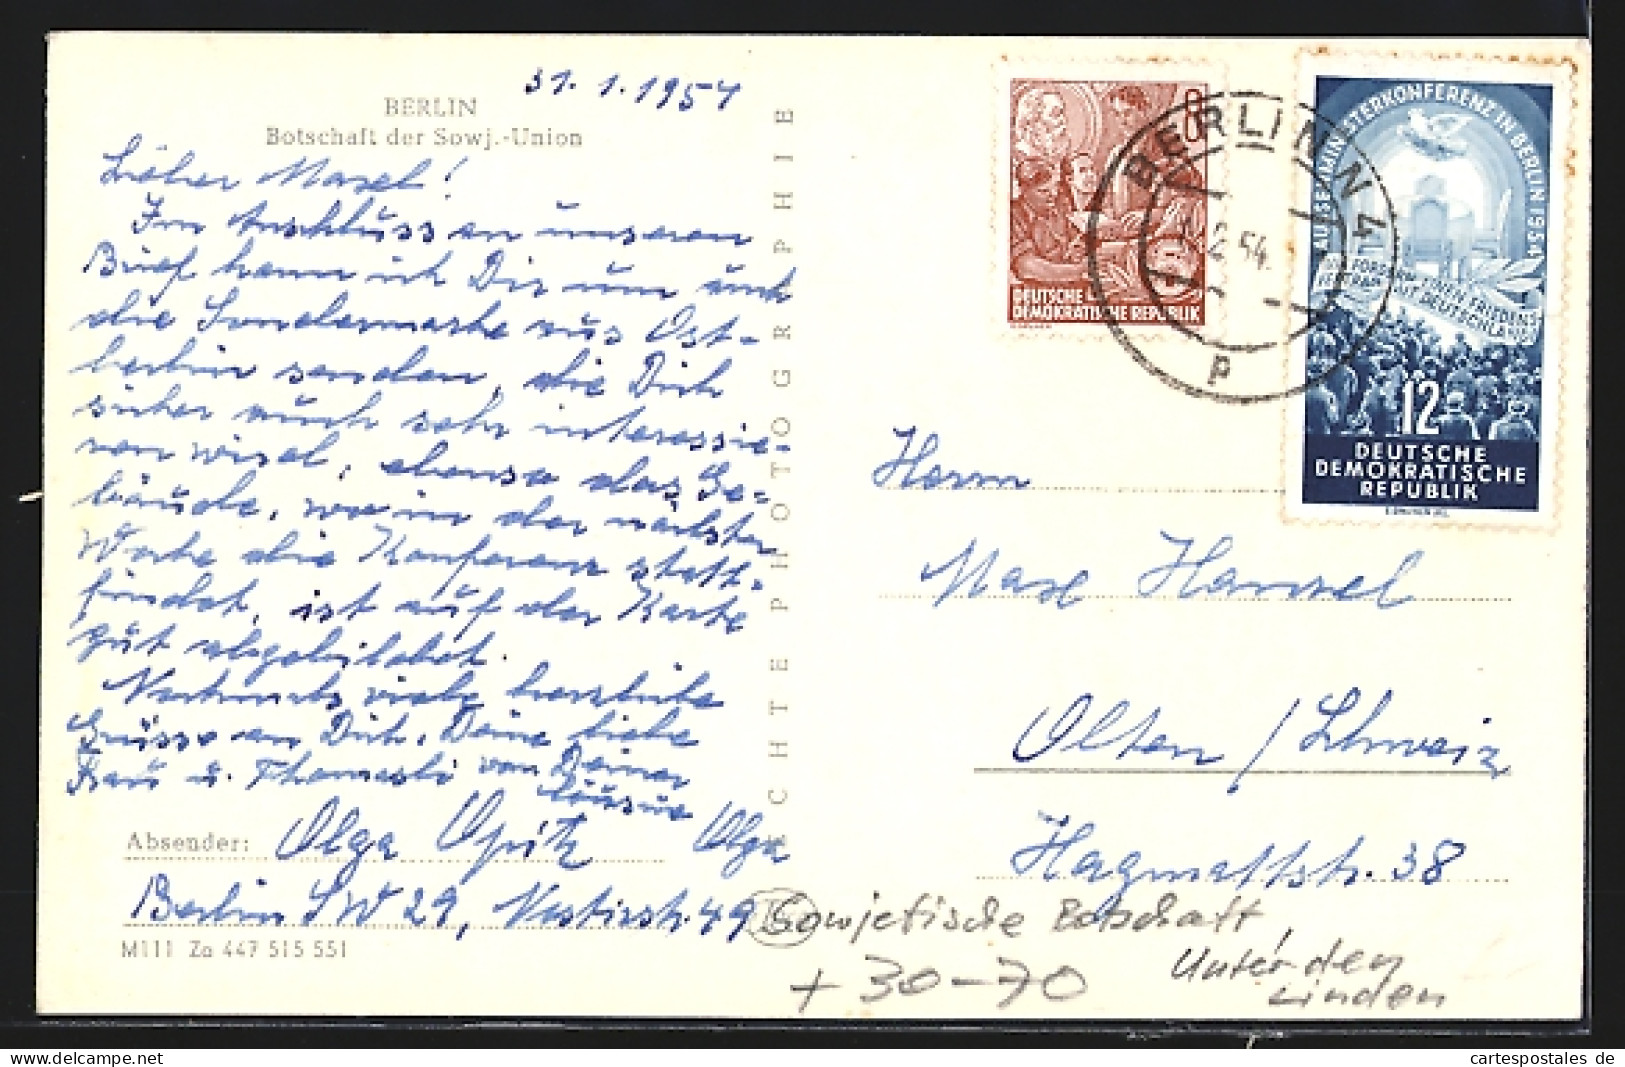 31. 1. 1954
BERLIN
Botschaft der Sowj.-Union
Lieber Maxel!
Im Anschluss an unseren
Brief kann ich Dir nun auch
die Sondermarke aus Ost-
berlin senden, die Dich
sicher auch sehr interessie-
ren wird, ebenso das Ge-
bäude, wo in der nächsten
Woche die Konferenz statt-
findet, ist auf der Karte
gut abgebildet.
Nochmals viele herzliche
Grüsse an Dich, Deine liebe
Frau u. Thomasli von Deiner
Olga
Absender: Olga Opitz
Berlin SW 29, 49
M111 Za 447 515 551
ECHTE PHOTOGRAPHIE
8
DEUTSCHE
DEMOKRATISCHE REPUBLIK
BERLIN N 4
2.54
p
AUSSENMINISTERKONFERENZ IN BERLIN 1954
12
DEUTSCHE
DEMOKRATISCHE
REPUBLIK
Herrn
Max Hansel
Olten / Schweiz
Hagmattstr. 38
Sowjetische Botschaft,
Unter den
Linden
+ 30-70
cartespostales de